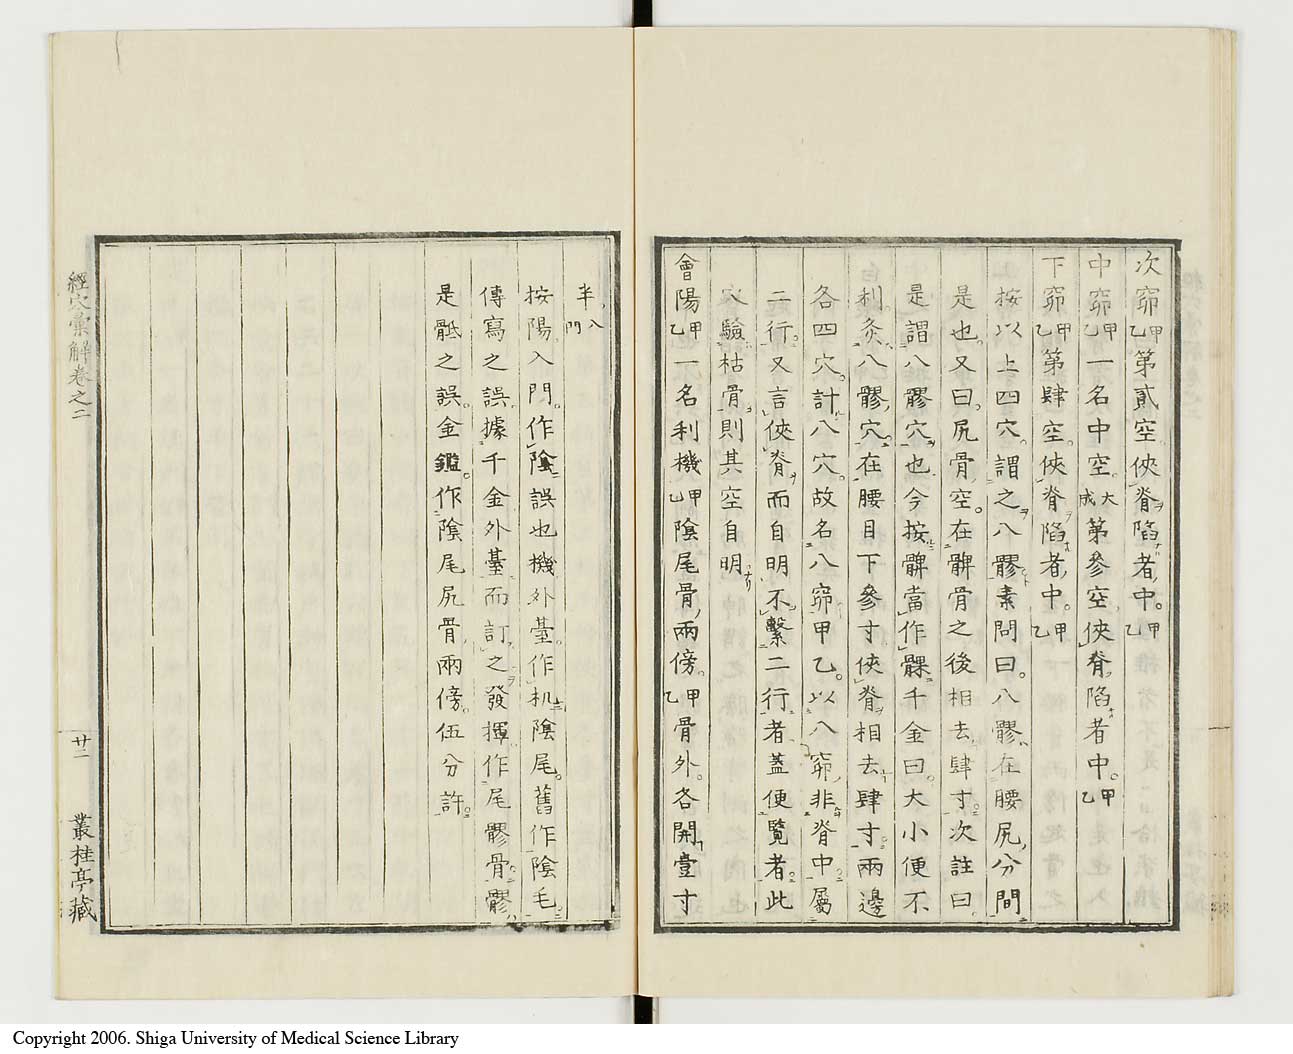 次窌甲乙第貳空俠脊陷者中甲乙
中窌甲乙一名中空大成第參空俠脊陷者中甲乙
下窌甲乙第肆空俠脊陷者中甲乙
按以上四穴謂之八髎素問曰八髎在腰尻分間
是也又曰尻骨空在髀骨之後相去肆寸次註曰
是謂八髎穴也今按髀當作髁千金曰大小便不
利灸八髎穴在腰目下參寸俠脊相去肆寸兩邊
各四穴計八穴故名八窌甲乙以八窌非脊中屬
二行又言俠脊而自明不繫二行者蓋便覧者此
穴驗枯骨則其空自明
會陽甲乙一名利機甲乙陰尾骨兩傍甲乙骨外各開壹寸
半入門
按陽入門作陰誤也機外臺作机陰尾舊作陰毛
傳寫之誤據千金外臺而訂之發揮作尾髎骨髎
是骶之誤金鑑作陰尾尻骨兩傍伍分許
經穴彙解卷之二
廿二
叢桂亭藏
Copyright 2006. Shiga University of Medical Science Library